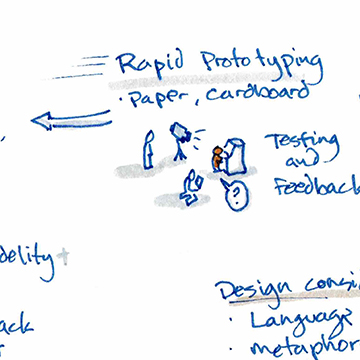 Rapid Prototyping
· Paper, cardboard
Testing
and
Feedback
?
delity +
Design consi
· Language
ack
· metaphor